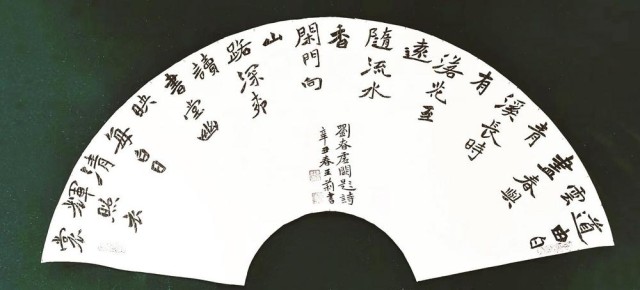 道由白
雲
盡春與
青
溪長時
有
落花至
遠
隨流水
香
閑門向
山
路深柳
讀
書堂幽
映
每白日
清
輝照衣
裳
劉眘虛闕題詩
辛丑春王書